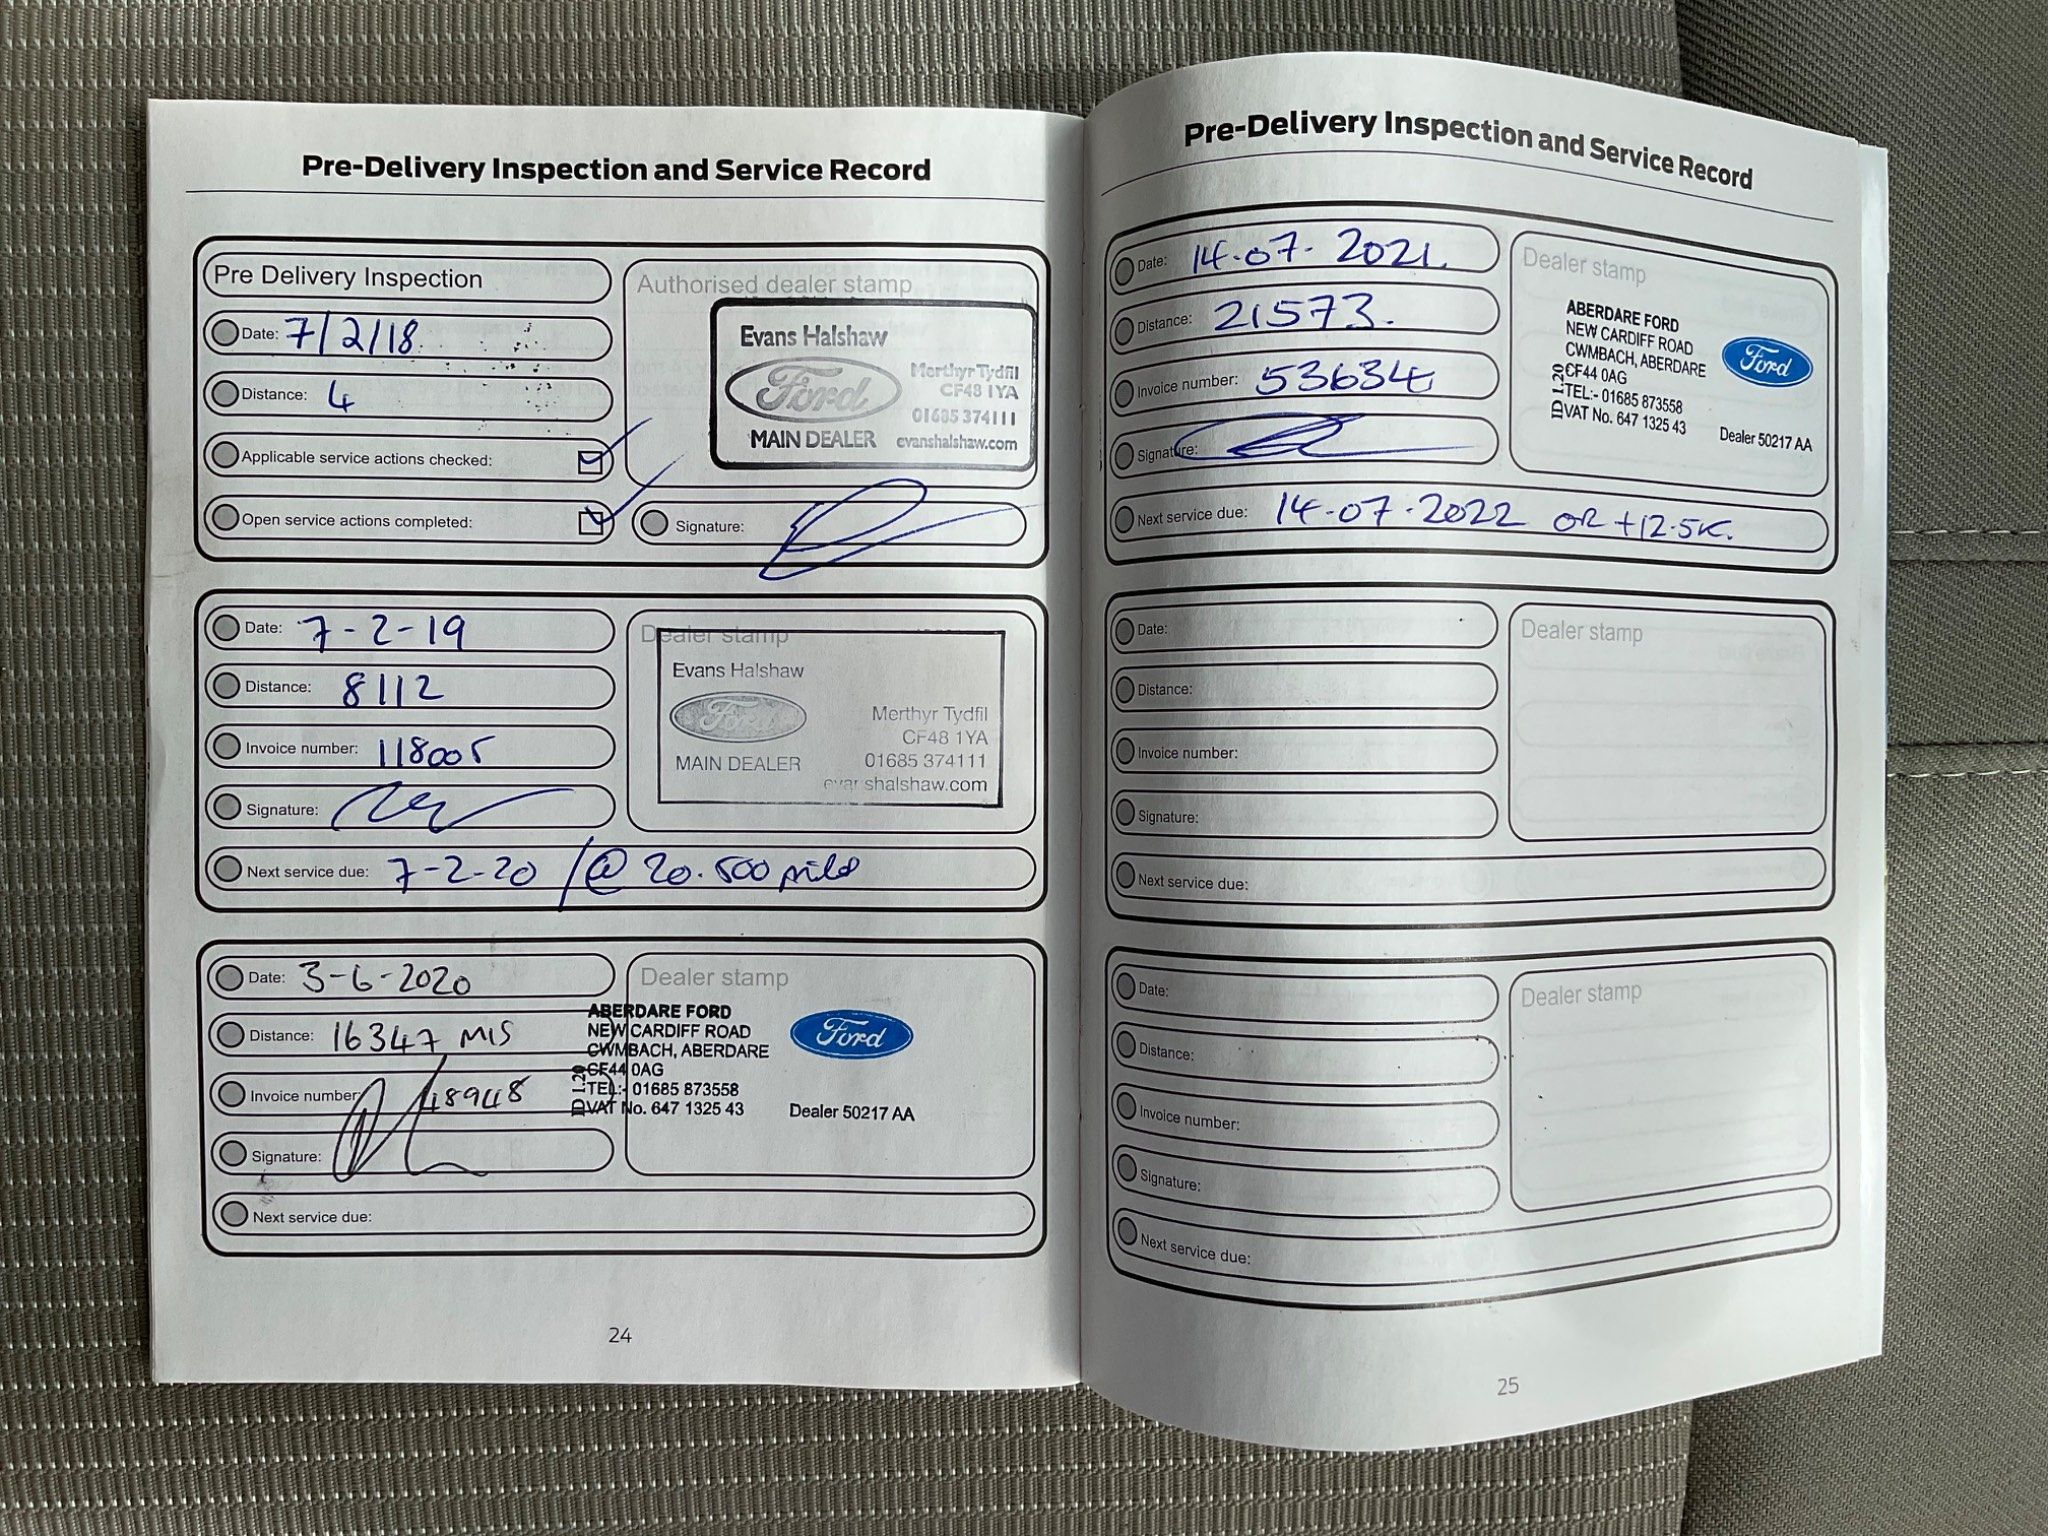 Pre-Delivery Inspection and Service Record
Pre Delivery Inspection
Date: 7/2/18
Distance: 4
Applicable service actions checked:
Open service actions completed:
Authorised dealer stamp
Evans Halshaw
Ford
MAIN DEALER
Merthyr Tydfil
CF48 1YA
01685 374111
evanshalshaw.com
Signature:
Date: 7-2-19
Distance: 8112
Invoice number: 118005
Signature:
Next service due: 7-2-20 / @ 20.500 miles
Dealer stamp
Evans Halshaw
Ford
MAIN DEALER
Merthyr Tydfil
CF48 1YA
01685 374111
evanshalshaw.com
Date: 3-6-2020
Distance: 16347 MIS
Invoice number: 48948
Signature:
Next service due:
Dealer stamp
ABERDARE FORD
NEW CARDIFF ROAD
CWMBACH, ABERDARE
CF44 0AG
TEL:- 01685 873558
VAT No. 647 1325 43
ID 1.20
Ford
Dealer 50217 AA
24
Pre-Delivery Inspection and Service Record
Date: 14-07-2021
Distance: 21573.
Invoice number: 53634
Signature:
Next service due: 14-07-2022 OR +12.5K.
Dealer stamp
ABERDARE FORD
NEW CARDIFF ROAD
CWMBACH, ABERDARE
CF44 0AG
TEL:- 01685 873558
VAT No. 647 1325 43
ID 1.20
Ford
Dealer 50217 AA
Date:
Distance:
Invoice number:
Signature:
Next service due:
Dealer stamp
Date:
Distance:
Invoice number:
Signature:
Next service due:
Dealer stamp
25